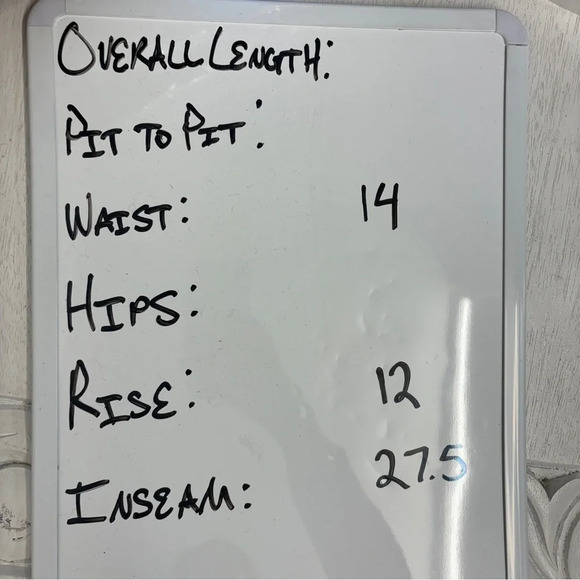 OVERALL LENGTH:
PIT TO PIT:
WAIST: 14
HIPS:
RISE: 12
INSEAM: 27.5